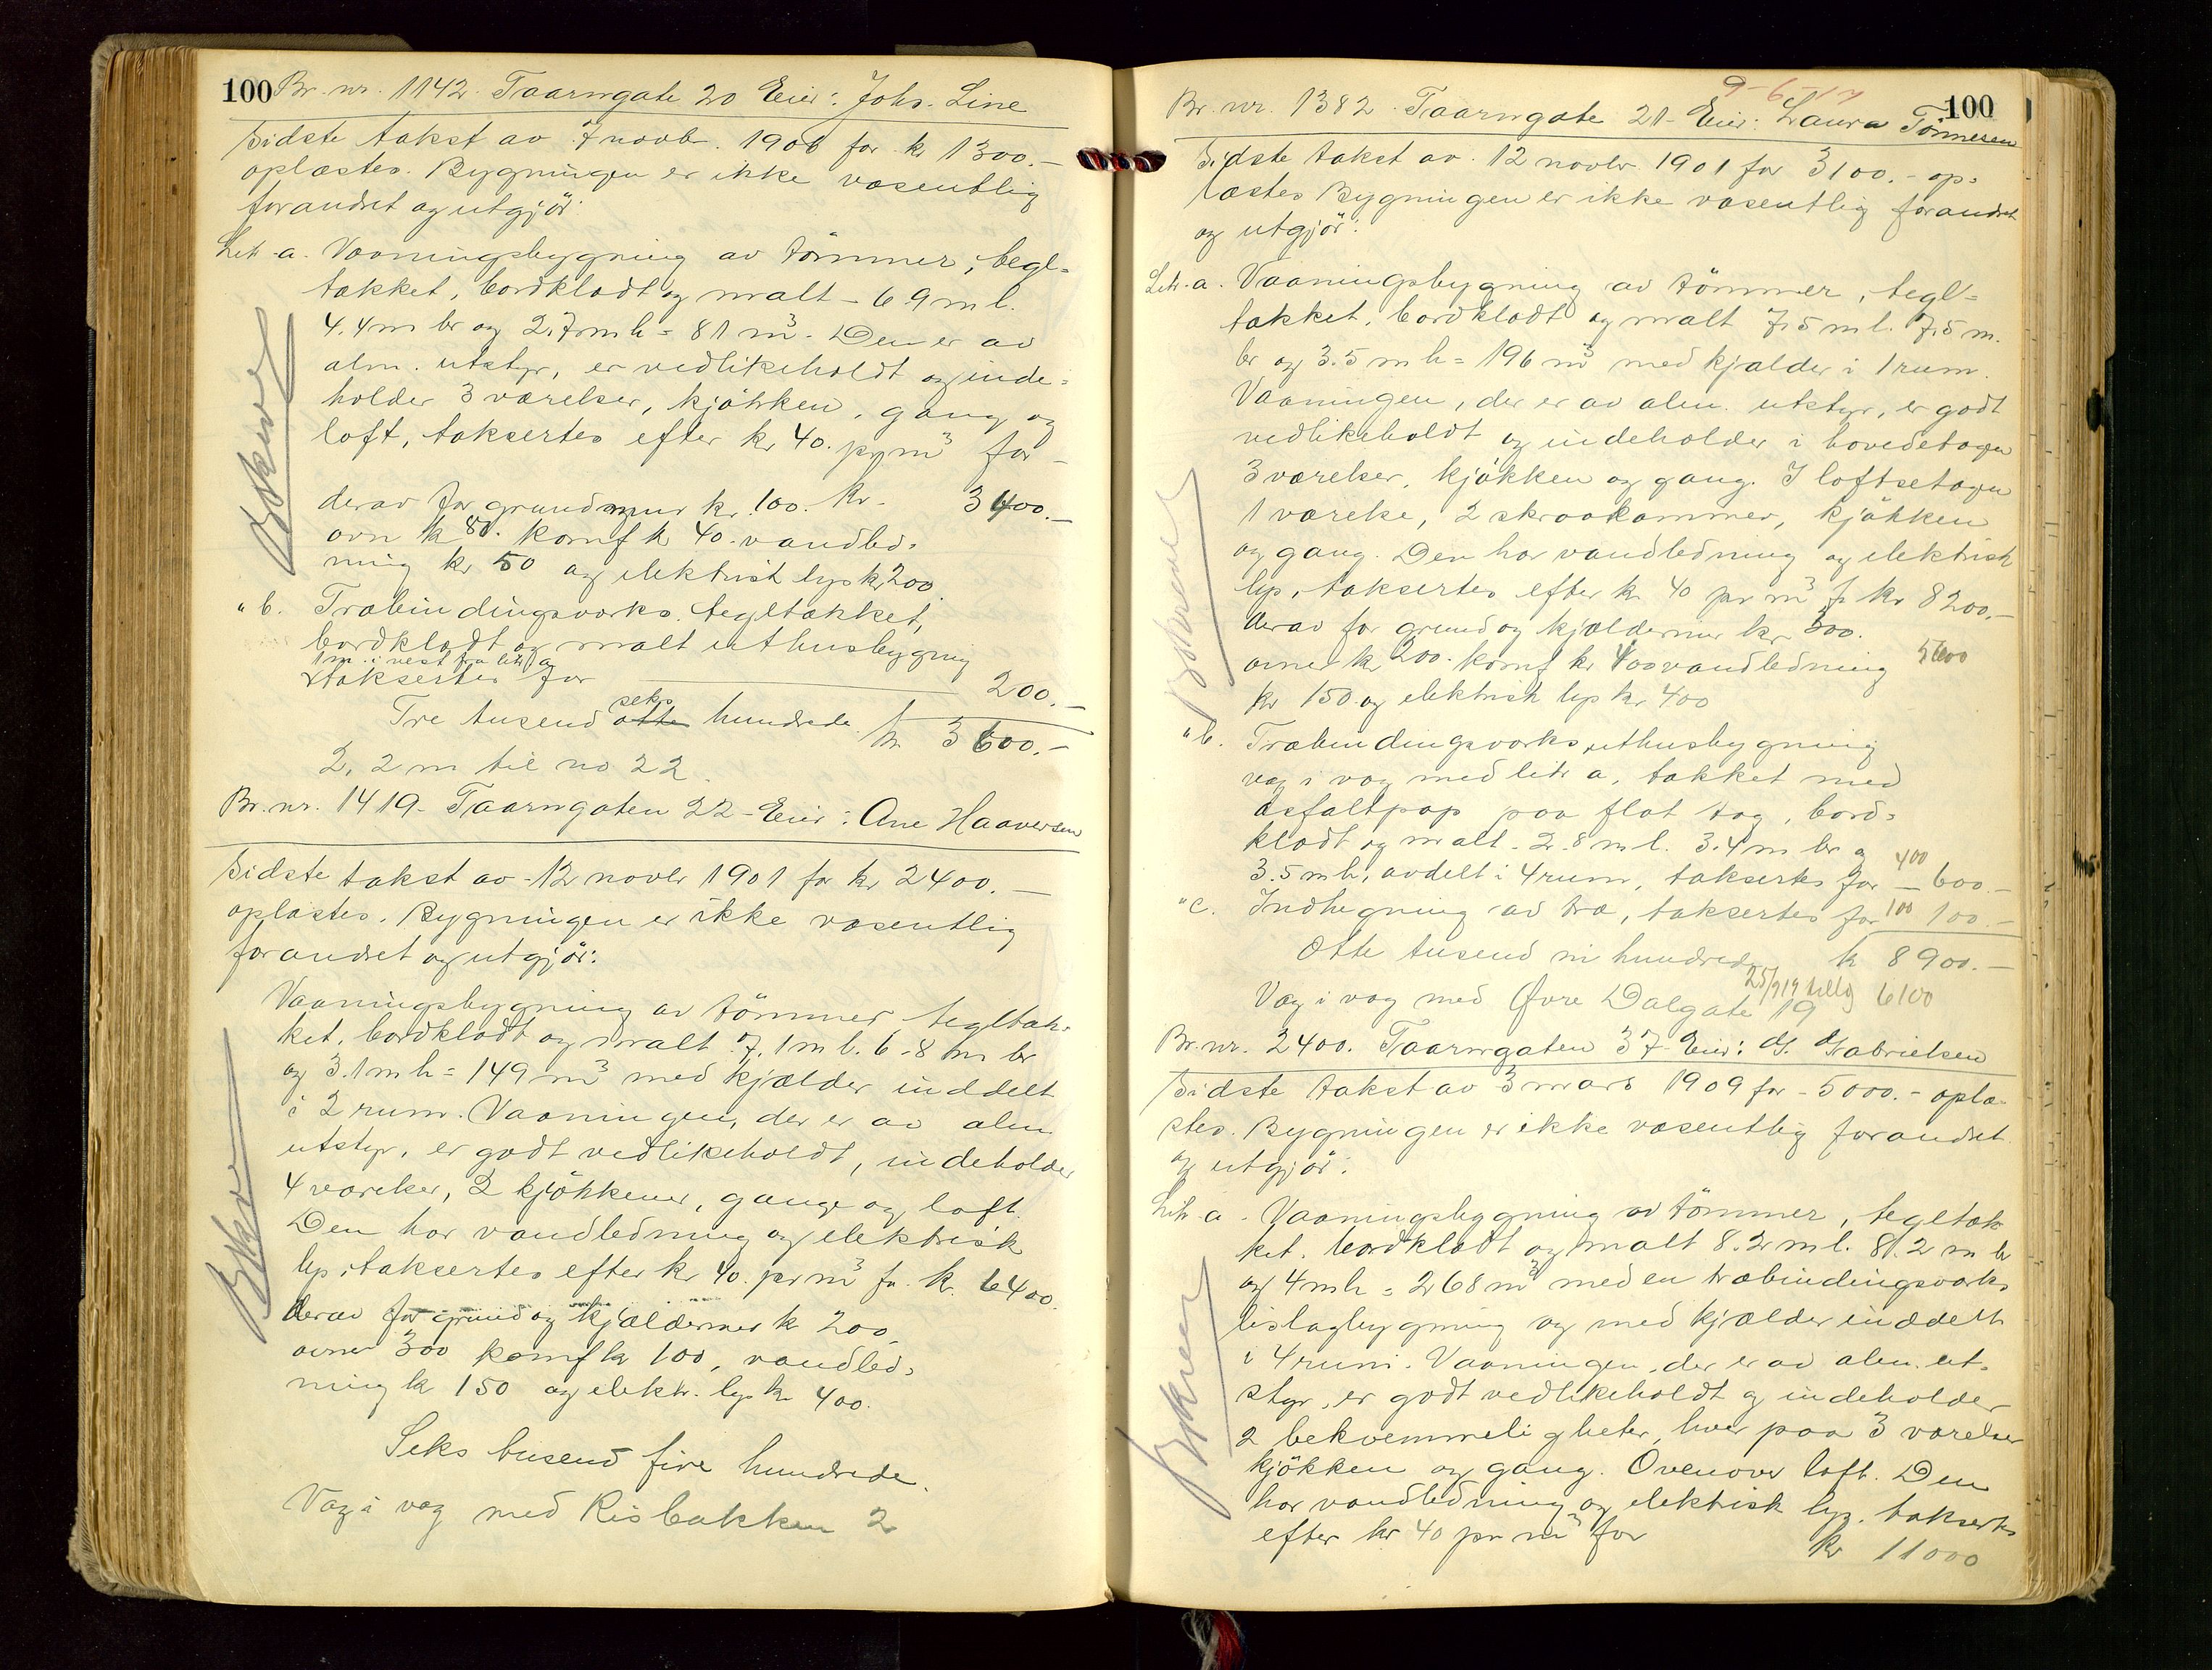 100 Br. nr. 1142. Taarngate 20 Eier: Johs. Line
Sidste takst av 7 novb. 1906 for kr 1300.-
oplæstes. Bygningen er ikke væsentlig
forandret og utgjör:
Litr. a. Vaaningsbygning av tömmer, tegl-
tækket, bordklædt og malt - 6 9 m l.
4.4 m br og 2.7 m h = 81 m³. Den er av
alm. utstyr, er vedlikeholdt og inde-
holder 3 værelser, kjökken, gang og
loft, taksertes efter kr 40. pr m³ for -
derav for grundmur kr. 100. kr. 3400.-
ovn k 80. komf k 40. vandled-
ning kr 50 og elektrist lys kr 200.
" b. Træbindingsverks. tegltækket,
bordklædt og malt uthusbygning
1 m. i vest fra litr a
taksertes for 200.-
seks
Tre tusend otte hundrede kr 3600.-
2,2 m til no 22.
Br. nr. 1419 - Taarngaten 22 - Eier: Ane Haaversen
Sidste takst av 12 novbr 1901 for kr 2400.-
oplæstes. Bygningen er ikke væsentlig
forandret og utgjör:
Vaaningsbygning av tömmer tegltæk-
ket, bordklædt og malt 7.1 m l. 6.8 m br
og 3.1 m h = 149 m³ med kjælder inddelt
i 2 rum. Vaaningen, der er av alm
utstyr, er godt vedlikeholdt, indeholder
4 værelser, 2 kjökkener, gange og loft.
Den har vandledning og elektrisk
lys, taksertes efter kr 40. pr m³ for k. 6400.
derav for grund og kjældermur k 200,
ovner 300 komf kr 100, vandled-
ning k 150 og elektr. lys kr 400.
Seks tusend fire hundrede.
Væg i væg med Risbakken 2
9-6-17
Br. nr. 1382. Taarngate 21 - Eier: Laura Tönnesen 100
Sidste takst av 12 novbr. 1901 for 3100.- op-
læstes Bygningen er ikke væsentlig forandret
og utgjör:
Litr. a. Vaaningsbygning av tömmer, tegl-
tækket, bordklædt og malt 7,5 m l. 7,5 m.
br og 3.5 m h = 196 m³ med kjælder i 1 rum.
Vaaningen, der er av alm. utstyr, er godt
vedlikeholdt og indeholder i hovedetagen
3 værelser, kjökken og gang. I loftsetagen
1 værelse, 2 skraakammer, kjökken
og gang. Den har vandledning og elektrisk
lys, taksertes efter kr 40 pr m³ fr kr 8200.-
derav for grund og kjældermur kr 300.
ovner k 200. komf kr 100 vandledning 5600
kr 150 og elektrisk lys kr 400
" b. Træbindingsverks uthusbygning
væg i væg med litr a, tækket med
asfaltpap paa flat tag, bord-
klædt og malt. 2.8 m l. 3.4 m br og
3.5 m h, avdelt i 4 rum, taksertes for 400 - 600.-
" c. Indhegning av træ, taksertes for 100 100.-
Otte tusend ni hundrede k 8900.-
Væg i væg med Øvre Dalgate 19 25/9 19 6100
Br. nr. 2400. Taarngaten 37 - Eier: G. Gabrielsen
Sidste takst av 3 mars 1909 for - 5000.- oplæ-
stes. Bygningen er ikke væsentlig forandret
og utgjör:
Litr. a. Vaaningsbygning av tömmer, tegltæk
ket, bordklædt og malt 8.2 m l. 8.2 m br
og 4 m h = 268 m³ med en træbindingsverks
bislagbygning og med kjælder inddelt
i 4 rum. Vaaningen, der er av alm. ut-
styr, er godt vedlikeholdt og indeholder
2 bekvemmeligheter, hver paa 3 værelser
kjökken og gang. Ovenover loft. Den
har vandledning og elektrisk lys. taksertes
efter kr 40 pr m³ for kr 11000